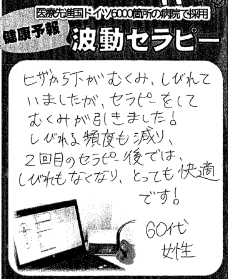 医療先進国ドイツ6000箇所の病院で採用
健康予報
波動セラピー
ヒザから下がむくみ、しびれて
いましたが、セラピーをして
むくみが引きました!
しびれる頻度も減り、
2回目のセラピー後では、
しびれもなくなり、とっても快適
です!
60代
女性